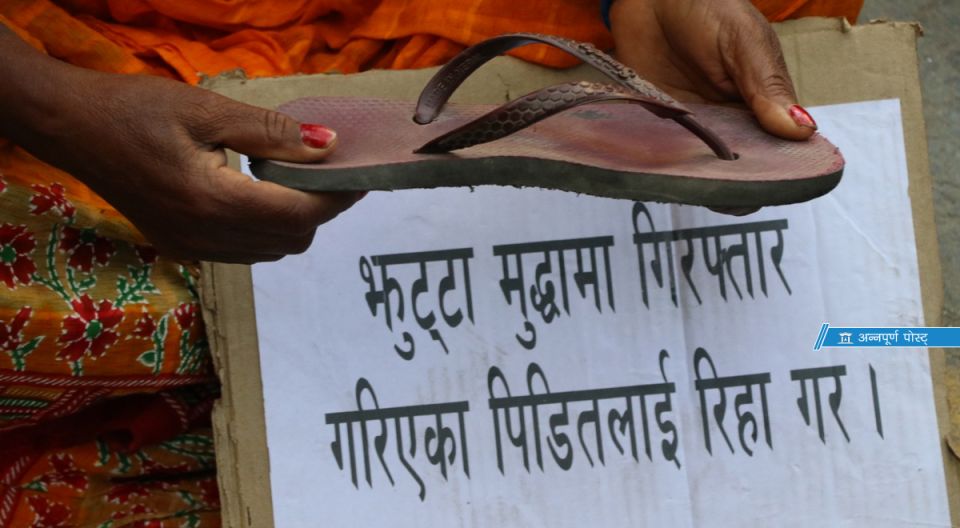 झुट्टा मुद्धामा गिरफ्तार
गरिएका पिडितलाई रिहा गर ।
अन्नपूर्ण पोस्ट्